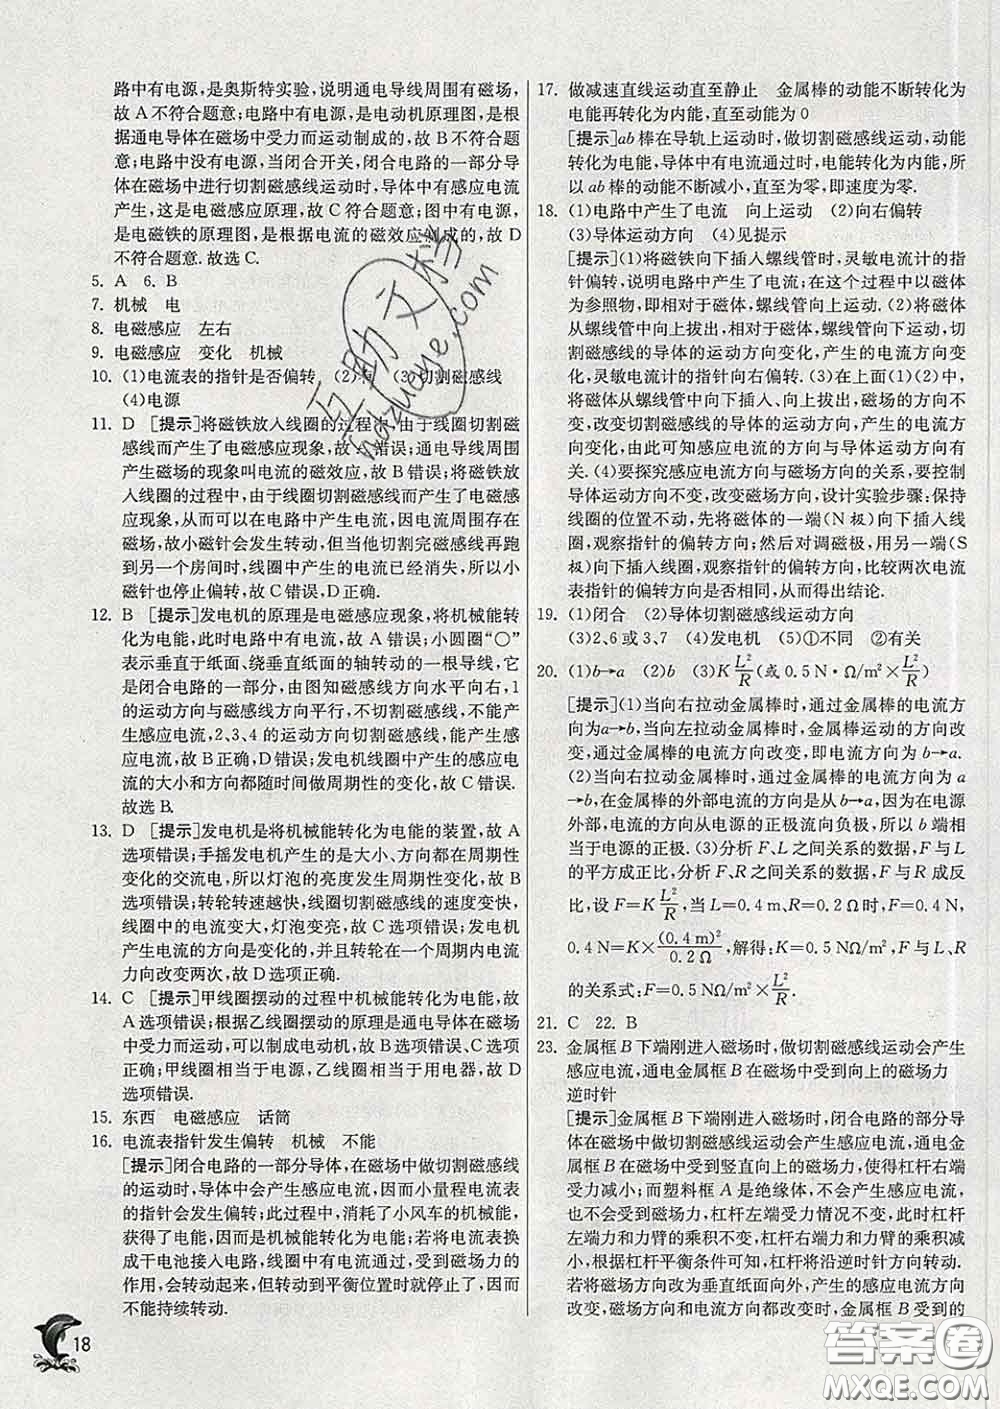 路中有电源,是奥斯特实验,说明通电导线周围有磁场,
故 A 不符合题意;电路中有电源,是电动机原理图,是根
据通电导体在磁场中受力而运动制成的,故 B 不符合题
意;电路中没有电源,当闭合开关,闭合电路的一部分导
体在磁场中进行切割磁感线运动时,导体中有感应电流
产生,这是电磁感应原理,故 C 符合题意;图中有电源,
是电磁铁的原理图,是根据电流的磁效应制成的,故 D
不符合题意.故选 C.
5. A 6. B
7. 机械 电
8. 电磁感应 左右
9. 电磁感应 变化 机械
10. (1)电流表的指针是否偏转 (2) (3)切割磁感线
(4)电源
11. D [提示]将磁铁放入线圈的过程中,由于线圈切割磁
感线而产生了电磁感应现象,故 A 错误;通电导线周围
产生磁场的现象叫电流的磁效应,故 B 错误;将磁铁放
入线圈的过程中,由于线圈切割磁感线而产生了电磁感
应现象,从而可以在电路中产生电流,因电流周围存在
磁场,故小磁针会发生转动,但当他切割完磁感线再跑
到另一个房间时,线圈中产生的电流已经消失,所以小
磁针也停止偏转,故 C 错误,D 正确.
12. B [提示]发电机的原理是电磁感应现象,将机械能转
化为电能,此时电路中有电流,故 A 错误;小圆圈“○”
表示垂直于纸面、绕垂直纸面的轴转动的一根导线,它
是闭合电路的一部分,由图知磁感线方向水平向右,1
的运动方向与磁感线方向平行,不切割磁感线,不能产
生感应电流,2、3、4 的运动方向切割磁感线,能产生感
应电流,故 B 正确,D 错误;发电机线圈中产生的感应电
流的大小和方向都随时间做周期性的变化,故 C 错误.
故选 B.
13. D [提示]发电机是将机械能转化为电能的装置,故 A
选项错误;手摇发电机产生的是大小、方向都在周期性
变化的交流电,所以灯泡的亮度发生周期性变化,故 B
选项错误;转轮转速越快,线圈切割磁感线的速度变快,
线圈中的电流变大,灯泡变亮,故 C 选项错误;发电机
产生电流的方向是变化的,并且转轮在一个周期内电流
力向改变两次,故 D 选项正确.
14. C [提示]甲线圈摆动的过程中机械能转化为电能,故
A 选项错误;根据乙线圈摆动的原理是通电导体在磁场
中受力而运动,可以制成电动机,故 B 选项错误、C 选项
正确;甲线圈相当于电源,乙线圈相当于用电器,故 D
选项错误.
15. 东西 电磁感应 话筒
16. 电流表指针发生偏转 机械 不能
[提示]闭合电路的一部分导体,在磁场中做切割磁感线
的运动时,导体中会产生感应电流,因而小量程电流表
的指针会发生偏转;此过程中,消耗了小风车的机械能,
获得了电能,因而是机械能转化为电能;若将电流表换
成干电池接入电路,线圈中有电流通过,受到磁场力的
作用,会转动起来,但转动到平衡位置时就停止了,因而
不能持续转动.
18
17. 做减速直线运动直至静止 金属棒的动能不断转化为
电能再转化为内能,直至动能为 0
[提示]ab 棒在导轨上运动时,做切割磁感线运动,动能
转化为电能,导体中有电流通过时,电能转化为内能,所
以 ab 棒的动能不断减小,直至为零,即速度为零.
18. (1)电路中产生了电流 向上运动 (2)向右偏转
(3)导体运动方向 (4)见提示
[提示](1)将磁铁向下插入螺线管时,灵敏电流计的指
针偏转,说明电路中产生了电流;螺线管向下运动,以磁体
为参照物,即相对于磁体,螺线管向上运动.(2)将磁体
从螺线管中向上拔出,相对于磁体,螺线管向下运动,切
割磁感线的导体的运动方向变化,产生的电流方向变
化,灵敏电流计的指针向右偏转.(3)在上面(1)(2)中,
磁体从螺线管中向下插入、向上拔出,磁场方向不变,
改变切割磁感线的导体的运动方向,产生的电流方向
方向变化,由此可知感应电流的方向与导体运动方向
有关.(4)要探究感应电流方向与磁场方向的关系,要控制
导体运动方向不变,改变磁场方向,设计实验步骤:保持
线圈的位置不动,先将磁体的一端(N 极)向下插入线
圈,观察指针的偏转方向;然后对调磁极,用另一端(S
极)向下插入线圈,观察指针的偏转方向,比较两次电流
表指针的偏转方向是否相同,从而得出结论.
19. (1)闭合 (2)导体切割磁感线运动方向
(3)2、6 或 3、7 (4)发电机 (5)①不同 ②有关
20. (1)b→a (2)b (3)K L²/R(或 0.5 N·Ω/m²×L²/R)
[提示](1)当向右拉动金属棒时,通过金属棒的电流方
向为a→b,当向左拉动金属棒时,金属棒运动的方向改
变,通过金属棒的电流方向改变,即电流方向为 b→a.
(2)当向右拉动金属棒时,通过金属棒的电流方向为 a
→b,在金属棒的外部电流的方向是从b→a,因为在电源
外部,电流方向从电源的正极流向负极,所以 b 端相
当于电源的正极.(3)分析 F、L 之间关系的数据,F 与 L
的平方成正比,分析 F、R 之间关系的数据,F 与 R 成反
比,设 F=K L²/R,当 L=0.4 m、R=0.2 Ω 时,F=0.4 N,
0.4 N=K×(0.4 m)²/0.2 Ω,解得:K=0.5 NΩ/m²,F 与 L、R
的关系式:F=0.5 NΩ/m²×L²/R.
21. C 22. B
23. 金属框 B 下端刚进入磁场时,做切割磁感线运动会产生
感应电流,通电金属框 B 在磁场中受到向上的磁场力
逆时针
[提示]金属框 B 下端刚进入磁场时,闭合电路的部分导
体在磁场中做切割磁感线运动会产生感应电流,通电金
属框 B 在磁场中受到竖直向上的磁场力,使得杠杆右端
受力减小;而塑料框 A 是绝缘体,不会产生感应电流,
也不会受到磁场力,杠杆左端受力情况不变,此时杠杆
左端力和力臂的乘积不变,杠杆右端力和力臂的乘积减
小,根据杠杆平衡条件可知,杠杆将沿逆时针方向转动.
若将磁场方向改为垂直纸面向外,产生的感应电流方向
改变,磁场方向和电流方向都改变时,金属框 B 受到的
互助文档
huzuoye.com
答案圈
MXQE.COM